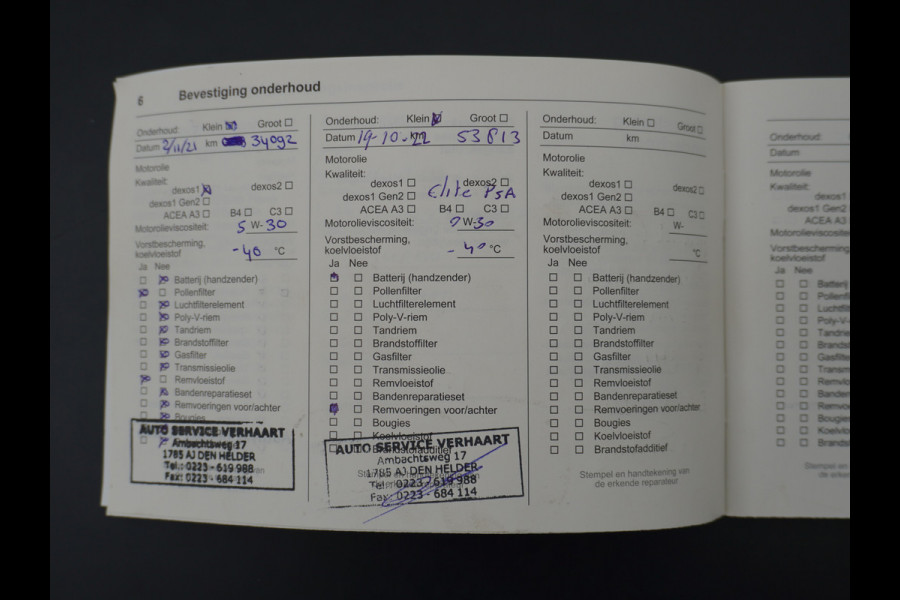 6 Bevestiging onderhoud
Onderhoud: Klein Groot
Datum 2/11/21 km 34092
Motorolie
Kwaliteit:
dexos1 dexos2
dexos1 Gen2
ACEA A3 B4 C3
Motorolieviscositeit: 5 W-30
Vorstbescherming,
koelvloeistof -40 °C
Ja Nee
Batterij (handzender)
Pollenfilter
Luchtfilterelement
Poly-V-riem
Tandriem
Brandstoffilter
Gasfilter
Transmissieolie
Remvloeistof
Bandenreparatieset
Remvoeringen voor/achter
Bougies
AUTO SERVICE VERHAART
Ambachtsweg 17
1785 AJ DEN HELDER
Tel.: 0223 - 619 988
Fax: 0223 - 684 114
Onderhoud: Klein Groot
Datum 19-10-22 km 53813
Motorolie
Kwaliteit:
dexos1 dexos2
dexos1 Gen2 Elite PSA
ACEA A3 B4 C3
Motorolieviscositeit: W-30
Vorstbescherming,
koelvloeistof -40 °C
Ja Nee
Batterij (handzender)
Pollenfilter
Luchtfilterelement
Poly-V-riem
Tandriem
Brandstoffilter
Gasfilter
Transmissieolie
Remvloeistof
Bandenreparatieset
Remvoeringen voor/achter
Bougies
Koelvloeistof
Brandstofadditief
AUTO SERVICE VERHAART
Ambachtsweg 17
1785 AJ DEN HELDER
Tel.: 0223-619 988
Fax: 0223 - 684 114
Onderhoud: Klein Groot
Datum km
Motorolie
Kwaliteit:
dexos1 dexos2
dexos1 Gen2
ACEA A3 B4 C3
Motorolieviscositeit: W-
Vorstbescherming,
koelvloeistof °C
Ja Nee
Batterij (handzender)
Pollenfilter
Luchtfilterelement
Poly-V-riem
Tandriem
Brandstoffilter
Gasfilter
Transmissieolie
Remvloeistof
Bandenreparatieset
Remvoeringen voor/achter
Bougies
Koelvloeistof
Brandstofadditief
Stempel en handtekening van
de erkende reparateur
Onderhoud:
Datum
Motorolie
Kwaliteit:
dexos1
dexos1 Gen2
ACEA A3
Ja Nee